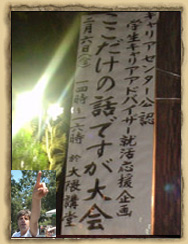 キャリアセンター公認
学生キャリアアドバイザー就活応援企画
ここだけの話ですが大会
二月六日(金)一四時～一六時 於大隈講堂